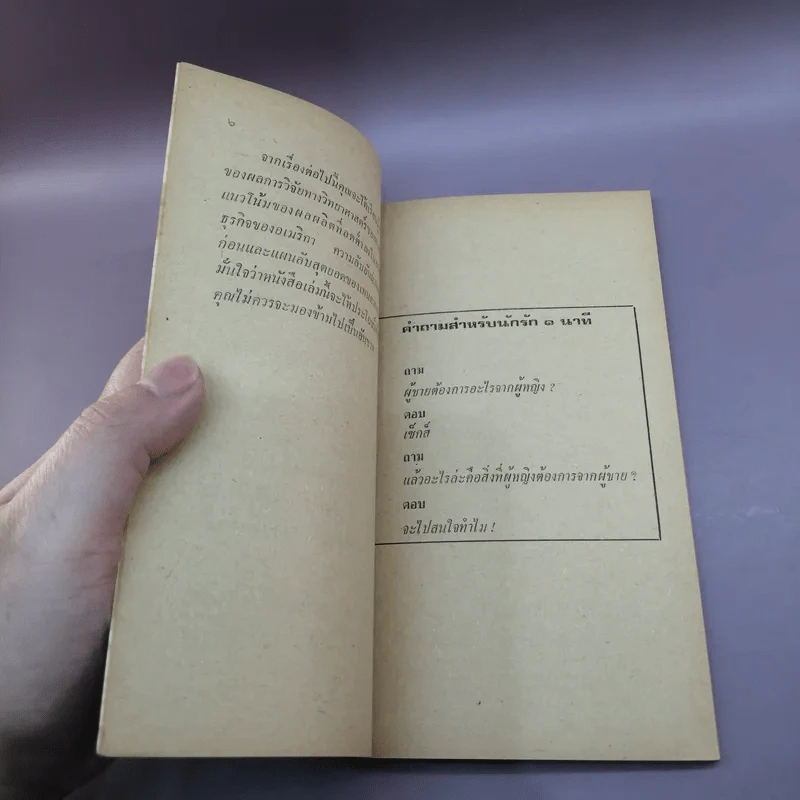 ๖
จากเรื่องต่อไปนี้คุณจะได้
ของผลการวิจัยทางวิทยาศาสตร์
แนวโน้มของผลผลิตที่ลดต่ำลง
ธุรกิจของอเมริกา ความลับ
ก่อนและแผนลับสุดยอดของ
มั่นใจว่าหนังสือเล่มนี้จะให้ประโยชน์
คุณไม่ควรจะมองข้ามไปเป็นอันขาด
คำถามสำหรับนักรัก ๑ นาที
ถาม
ผู้ชายต้องการอะไรจากผู้หญิง ?
ตอบ
เซ็กส์
ถาม
แล้วอะไรล่ะคือสิ่งที่ผู้หญิงต้องการจากผู้ชาย ?
ตอบ
จะไปสนใจทำไม !